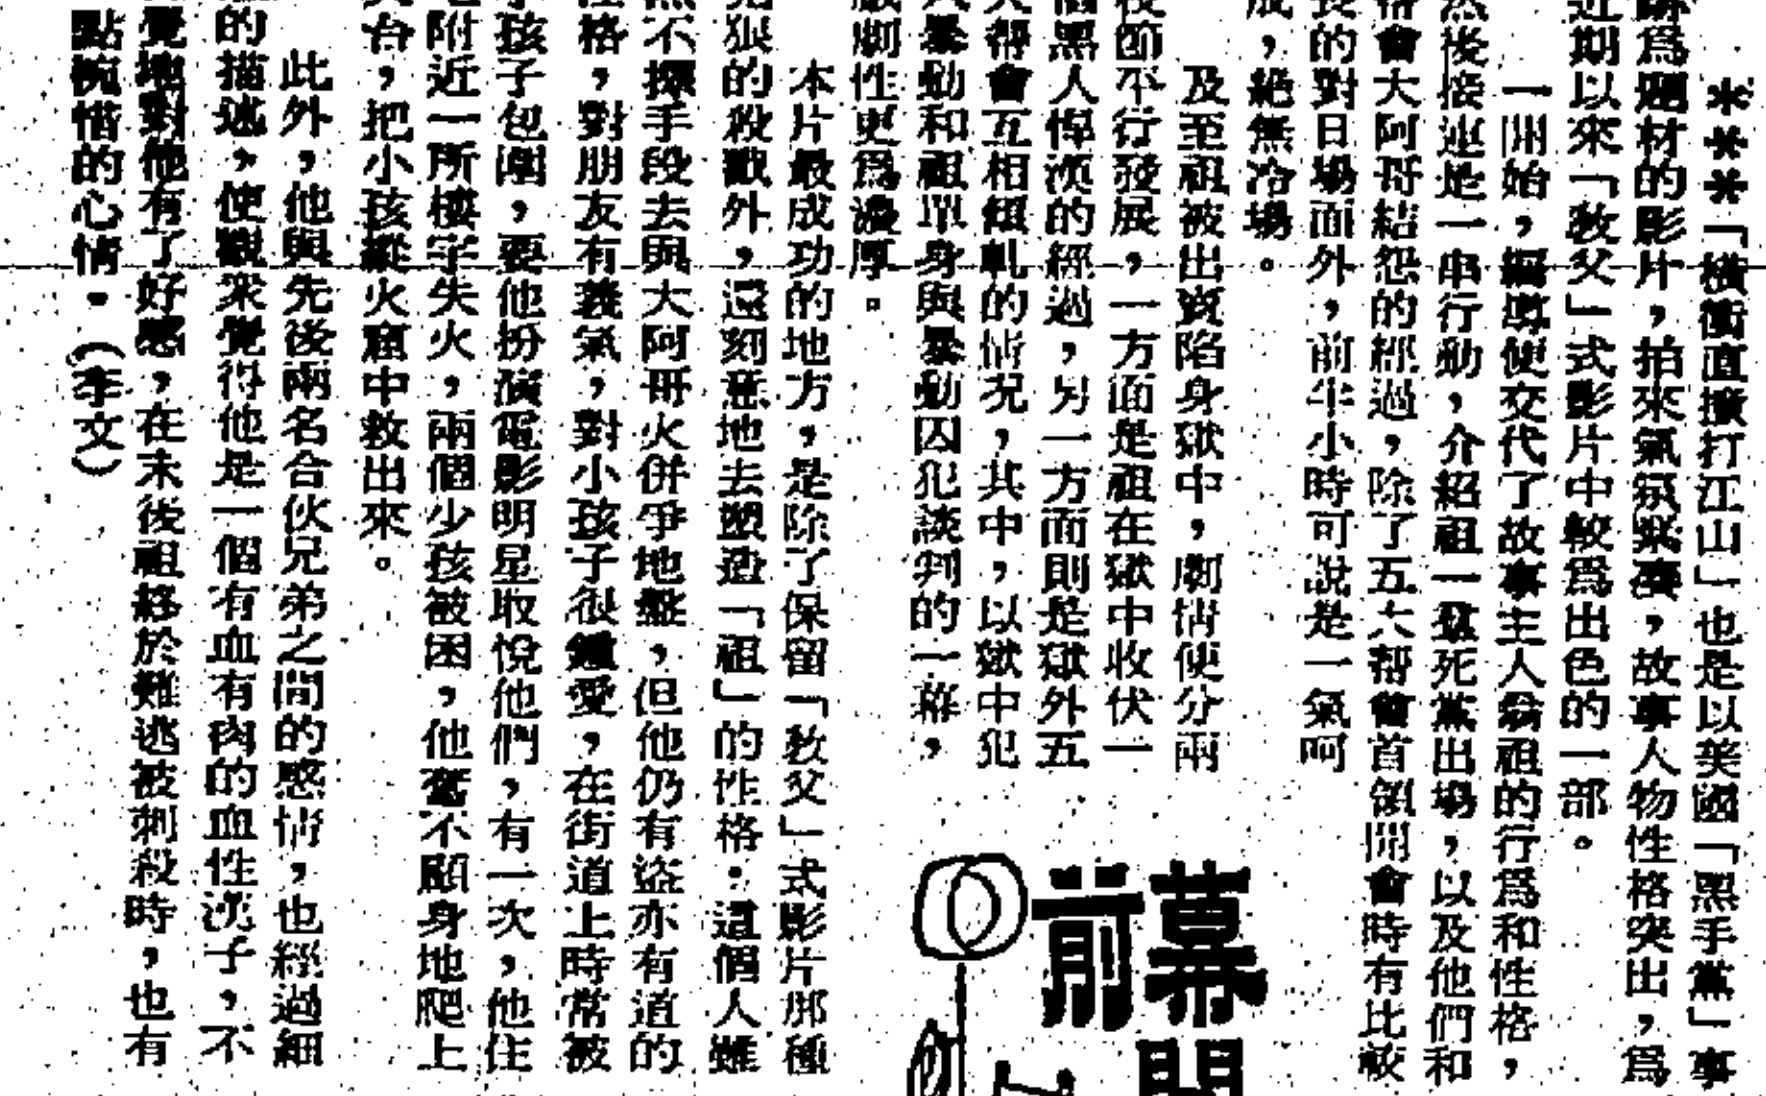 ＊＊＊「橫衝直撞打江山」也是以美國「黑手黨」事
爲題材的影片，拍來氣氛緊湊，故事人物性格突出，爲
近期以來「教父」式影片中較爲出色的一部。
一開始，編導便交代了故事主人翁祖的行爲和性格，
然後接連是一串行動，介紹祖一羣死黨出場，以及他們和
幫會大阿哥結怨的經過，除了五大幫會首領開會時有比較
長的對日場面外，前半小時可說是一氣呵
成，絕無冷場。
及至祖被出賣陷身獄中，劇情便分兩
枝節平行發展，一方面是祖在獄中收伏一
個黑人悍漢的經過，另一方面則是獄外五
大幫會互相傾軋的情況，其中，以獄中犯
人暴動和祖單身與暴動囚犯談判的一幕，
戲劇性更爲濃厚。
本片最成功的地方，是除了保留「教父」式影片那種
狠的殺戮外，還刻意地去塑造「祖」的性格。這個人雖
然不擇手段去與大阿哥火併爭地盤，但他仍有盜亦有道的
性格，對朋友有義氣，對小孩子很鍾愛，在街道上時常被
小孩子包圍，要他扮演電影明星取悅他們，有一次，他住
附近一所樓宇失火，兩個少孩被困，他奮不顧身地爬上
台，把小孩從火窟中救出來。
此外，他與先後兩名合伙兄弟之間的感情，也經過細
的描述，使觀衆覺得他是一個有血有肉的血性漢子，不
覺地對他有了好感，在末後祖終於難逃被刺殺時，也有
點惋惜的心情。（李文）
幕
前